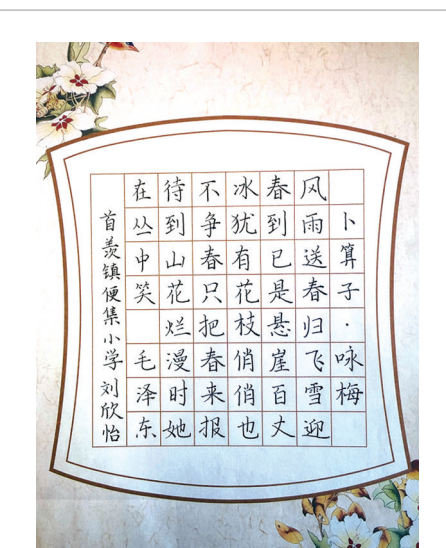 卜算子·咏梅
风雨送春归飞雪迎
春到已是悬崖百丈
冰犹有花枝俏俏也
不争春只把春来报
待到山花烂漫时她
在丛中笑 毛泽东
首羡镇便集小学 刘欣怡